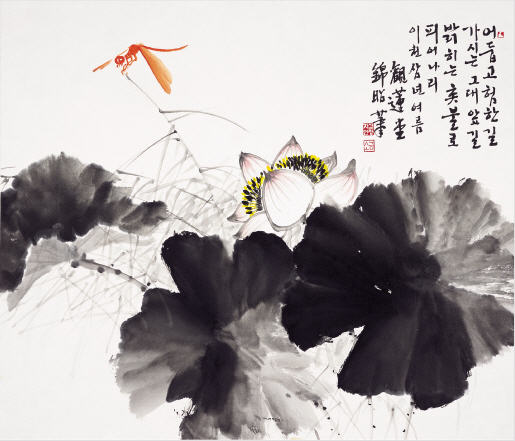 어둡고 험한 길
가시는 그대 앞길
밝히는 횃불로
피어나리
이천삼년 여름
觀蓮堂
錦昭筆